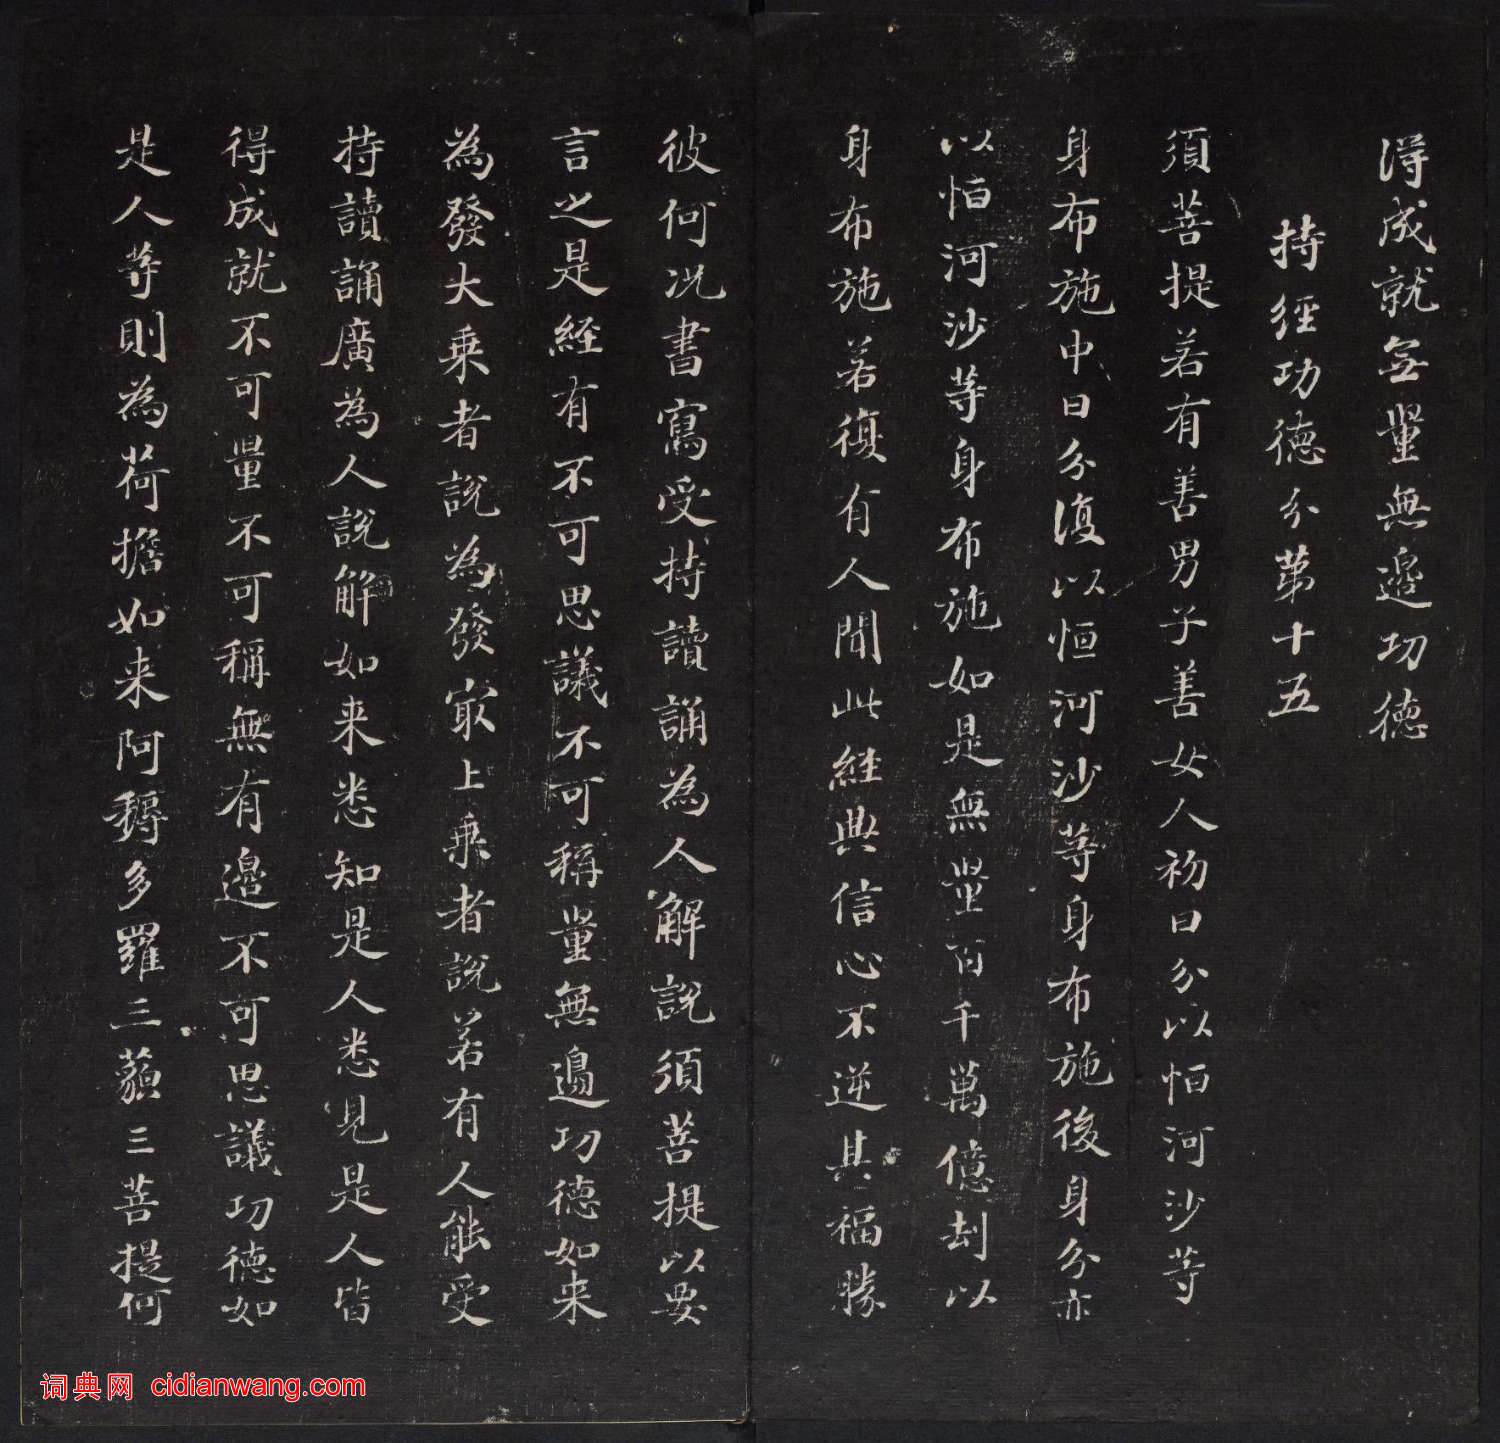 得成就無量無邊功德
持經功德分第十五
須菩提若有善男子善女人初日分以恒河沙等
身布施中日分復以恒河沙等身布施後身分亦
以恒河沙等身布施如是無量百千萬億刦以
身布施若復有人聞此經典信心不逆其福勝
彼何况書寫受持讀誦為人解說須菩提以要
言之是經有不可思議不可稱量無邊功德如来
為發大乗者說為發冣上乗者說若有人能受
持讀誦廣為人說解如来悉知是人悉見是人皆
得成就不可量不可稱無有邊不可思議功德如
是人等則為荷擔如来阿耨多羅三藐三菩提何
词典网 cidianwang.com